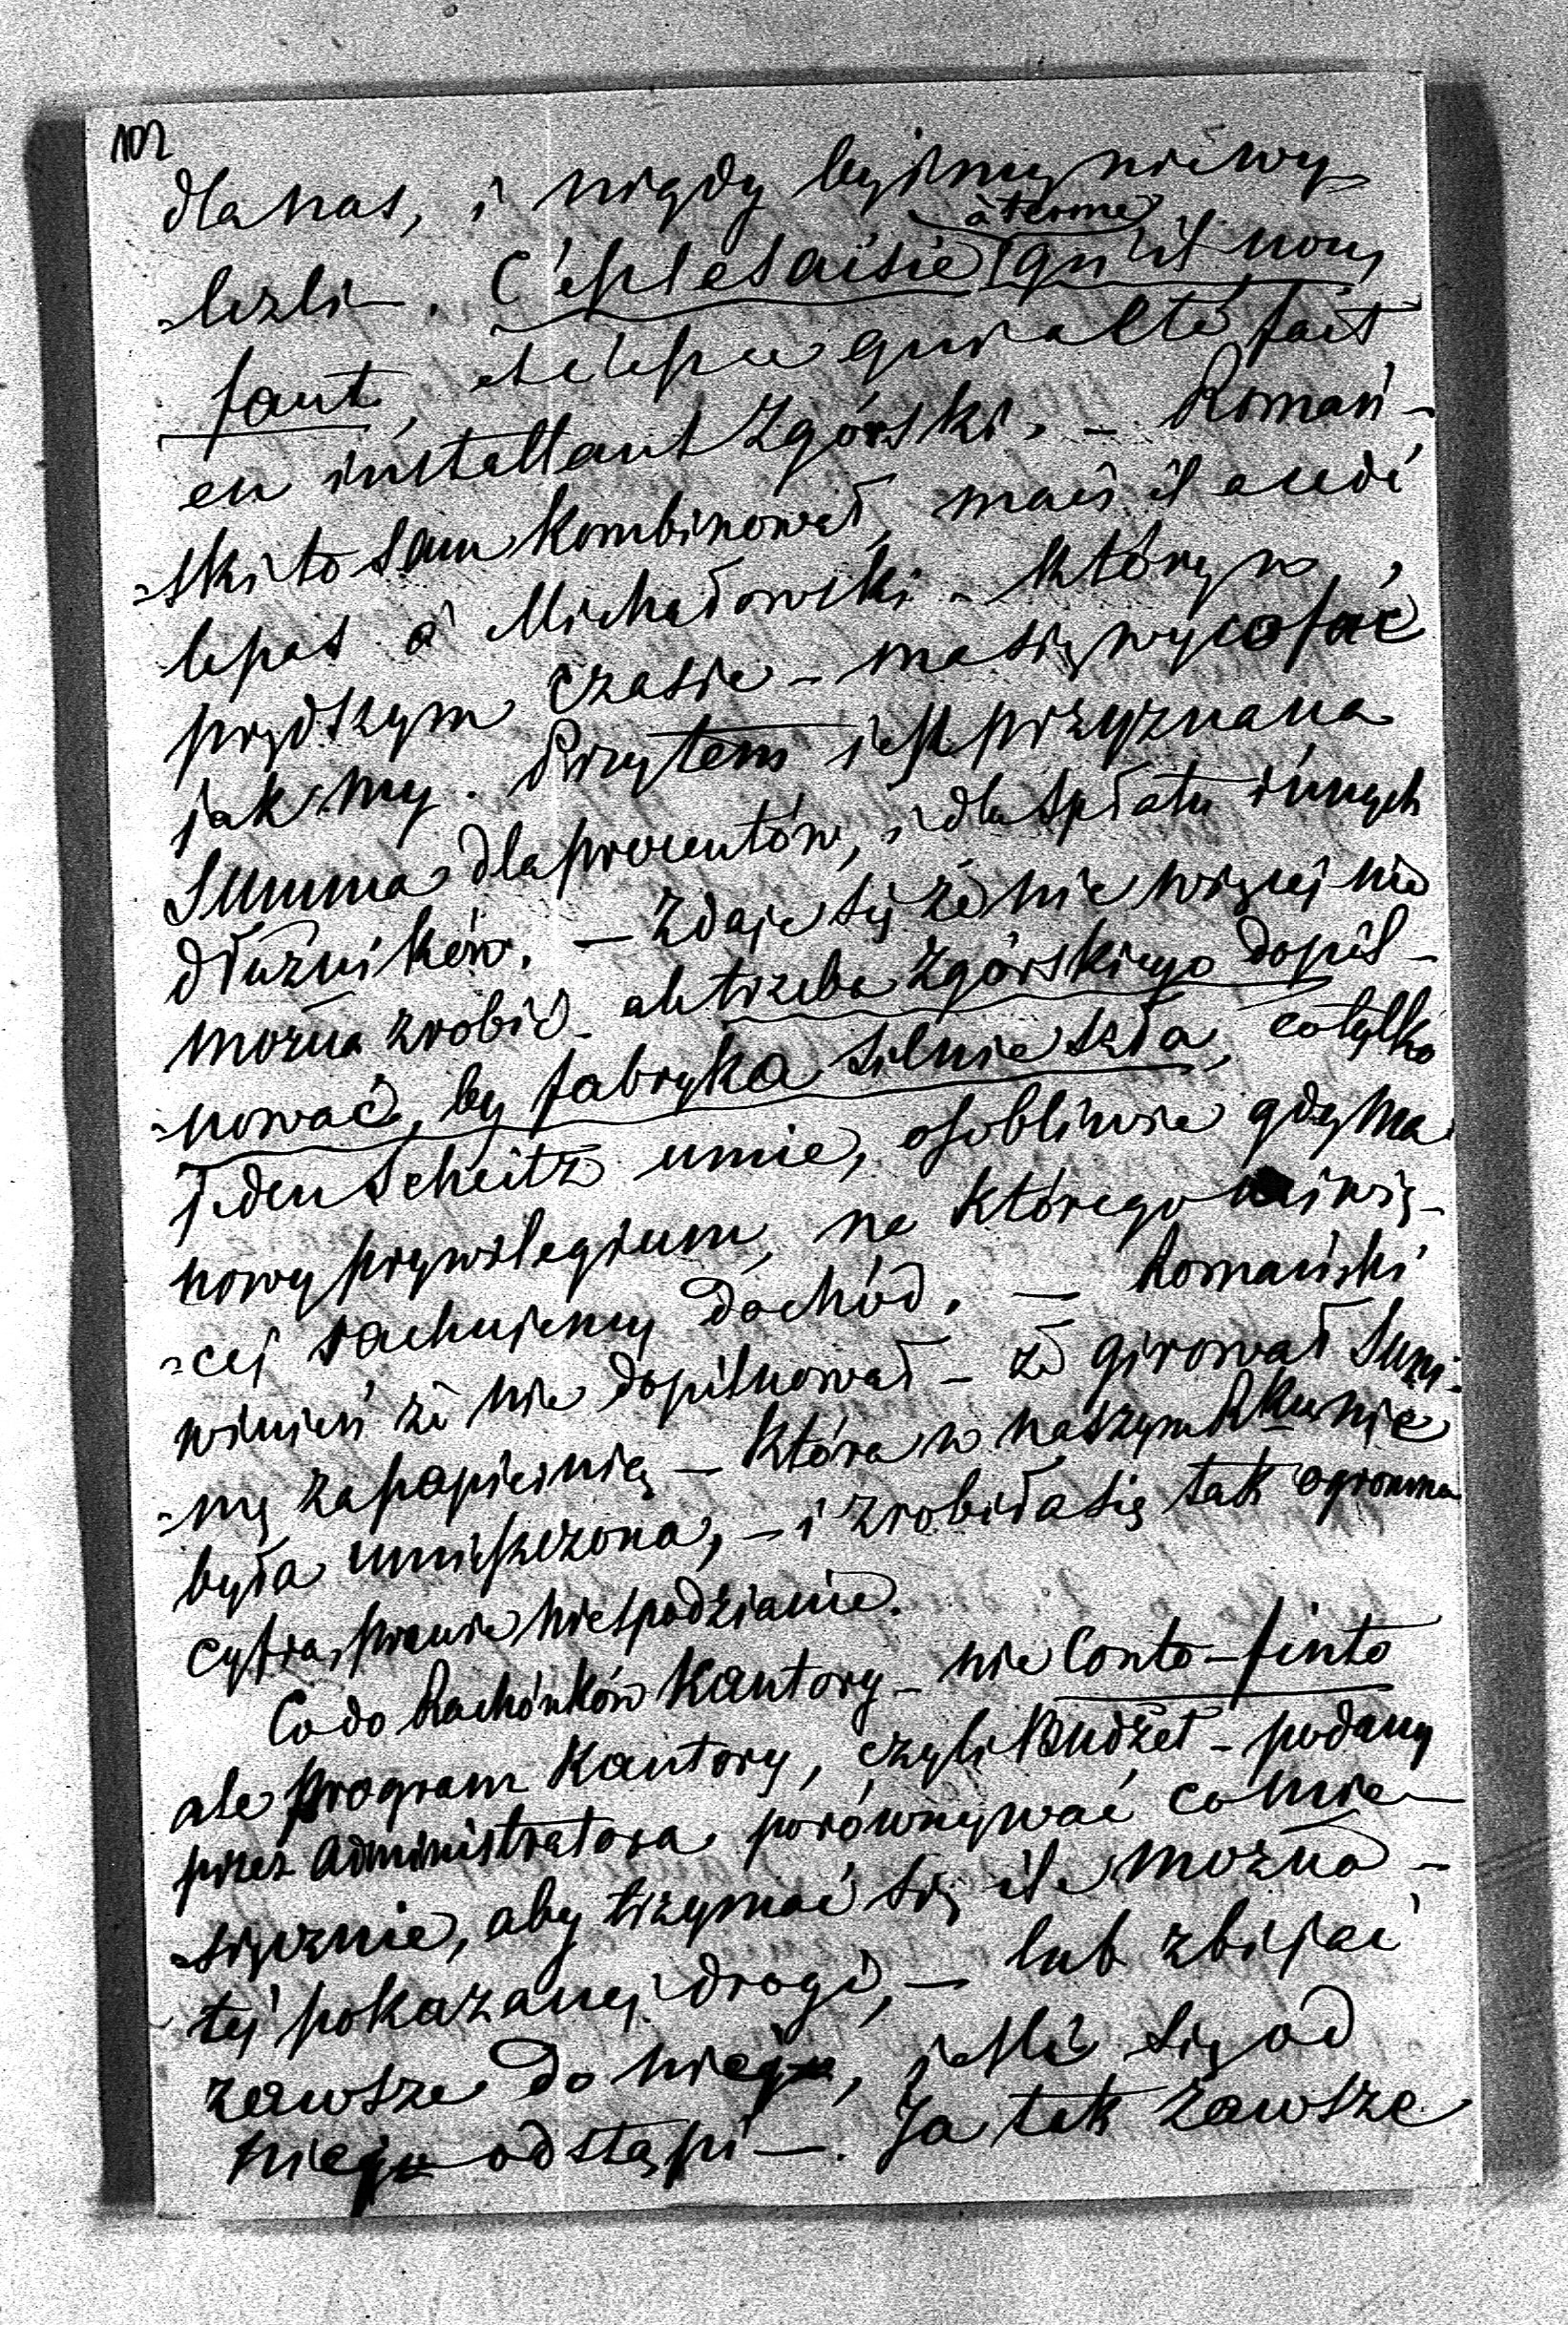 102
dla nas, i nigdy byśmy nie wy-
à terme
=leźli –. C'est le saisie qu'il nous
faut, et c'est ce qui a été fait
en installant Zgórski. – Romań-
=ski to sam kombinował, mais il a cédé
le pas à Michałowski – który w
prędszym czasie – ma się wycofać
jak my. Przytem jest przyznana
Summa dla procentów, i dla spłatu innych
dłużników. – Zdaje się że nic więcej nie
można zrobić – ale trzeba Zgórskiego dopil-
=nować, by fabryka silnie szła, co tylko
jeden Scheitz umie, osobliwie gdy ma
nowy prywilegium, na którego
=cej rachujemy dochód. – Romański
winień że nie dopilnował – że girował Sum-
=mę za papiernię – która w naszym Rku nie
była umieszczona, – i zrobiła się tak ogromna
cyfra, prawie niespodzianie.
Co do Rachónków Kantory – nie Conto-finto
ale program Kantory, czyli Budżet – podany
przez Administratora porównywać co mie-
=sięcznie, aby trzymać się ile można –
tej pokazanej drogi, – lub zbijać
zawsze do niego, jeśli się od
niego odstąpi –. Ja tak zawsze